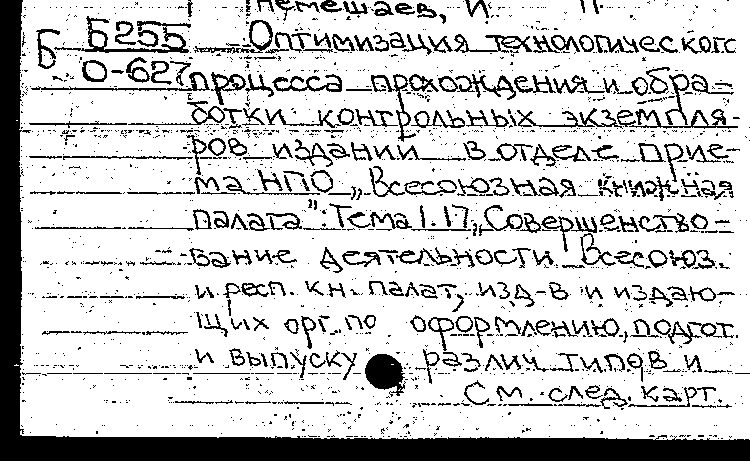 Немешаев, И. П.
Б Б255 Оптимизация технологического
О-627 процесса прохождения и обра-
ботки контрольных экземпля-
ров изданий в отделе прие-
ма НПО „Всесоюзная книжная
палата": Тема 1.17„Совершенство-
вание деятельности Всесоюз.
и респ. кн. палат, изд-в и издаю-
щих орг. по оформлению, подгот.
и выпуску различ. типов и
См. след. карт.